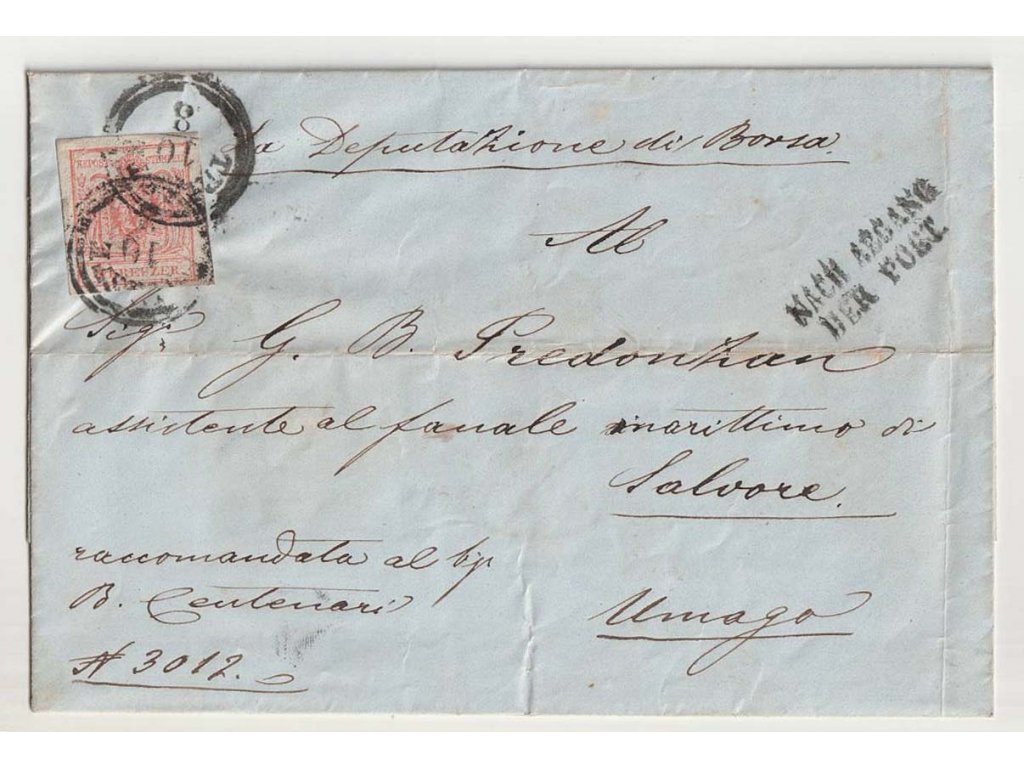 La Deputazione di Borsa
Al
Sigr G. B. Predonzan
assistente al fanale marittimo di
Salvore.
raccomandata al Sigr
B. Centenari
Umago
N 3012.
NACH ABGANG
DER POST.
KREUZER
8
10
10